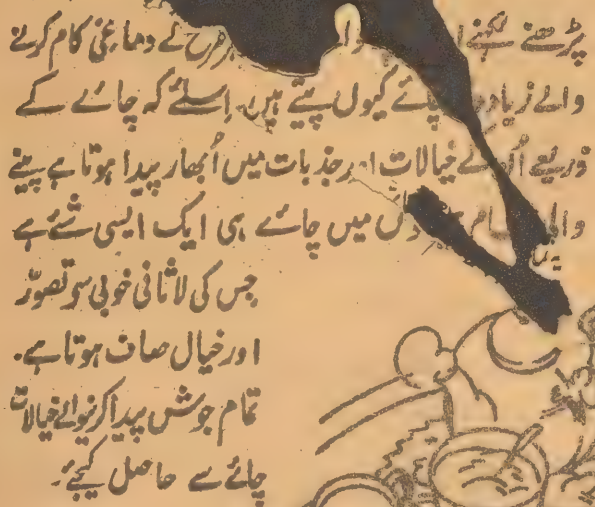 پڑھنے لکھنے وا ہر طرح کے دماغی کام کرنے
والے زیادہ چائے کیوں پیتے ہیں۔ اِسلئے کہ چائے کے
ذریعے اُن کے خیالات اور جذبات میں اُبھار پیدا ہوتا ہے پینے
میں چائے ہی ایک ایسی شئے ہے
جس کی لاثانی خوبی سے تصوّر
اور خیال صاف ہوتا ہے۔
تمام جوش پیدا کرنیوالے خیالات
چائے سے حاصل کیجئے۔